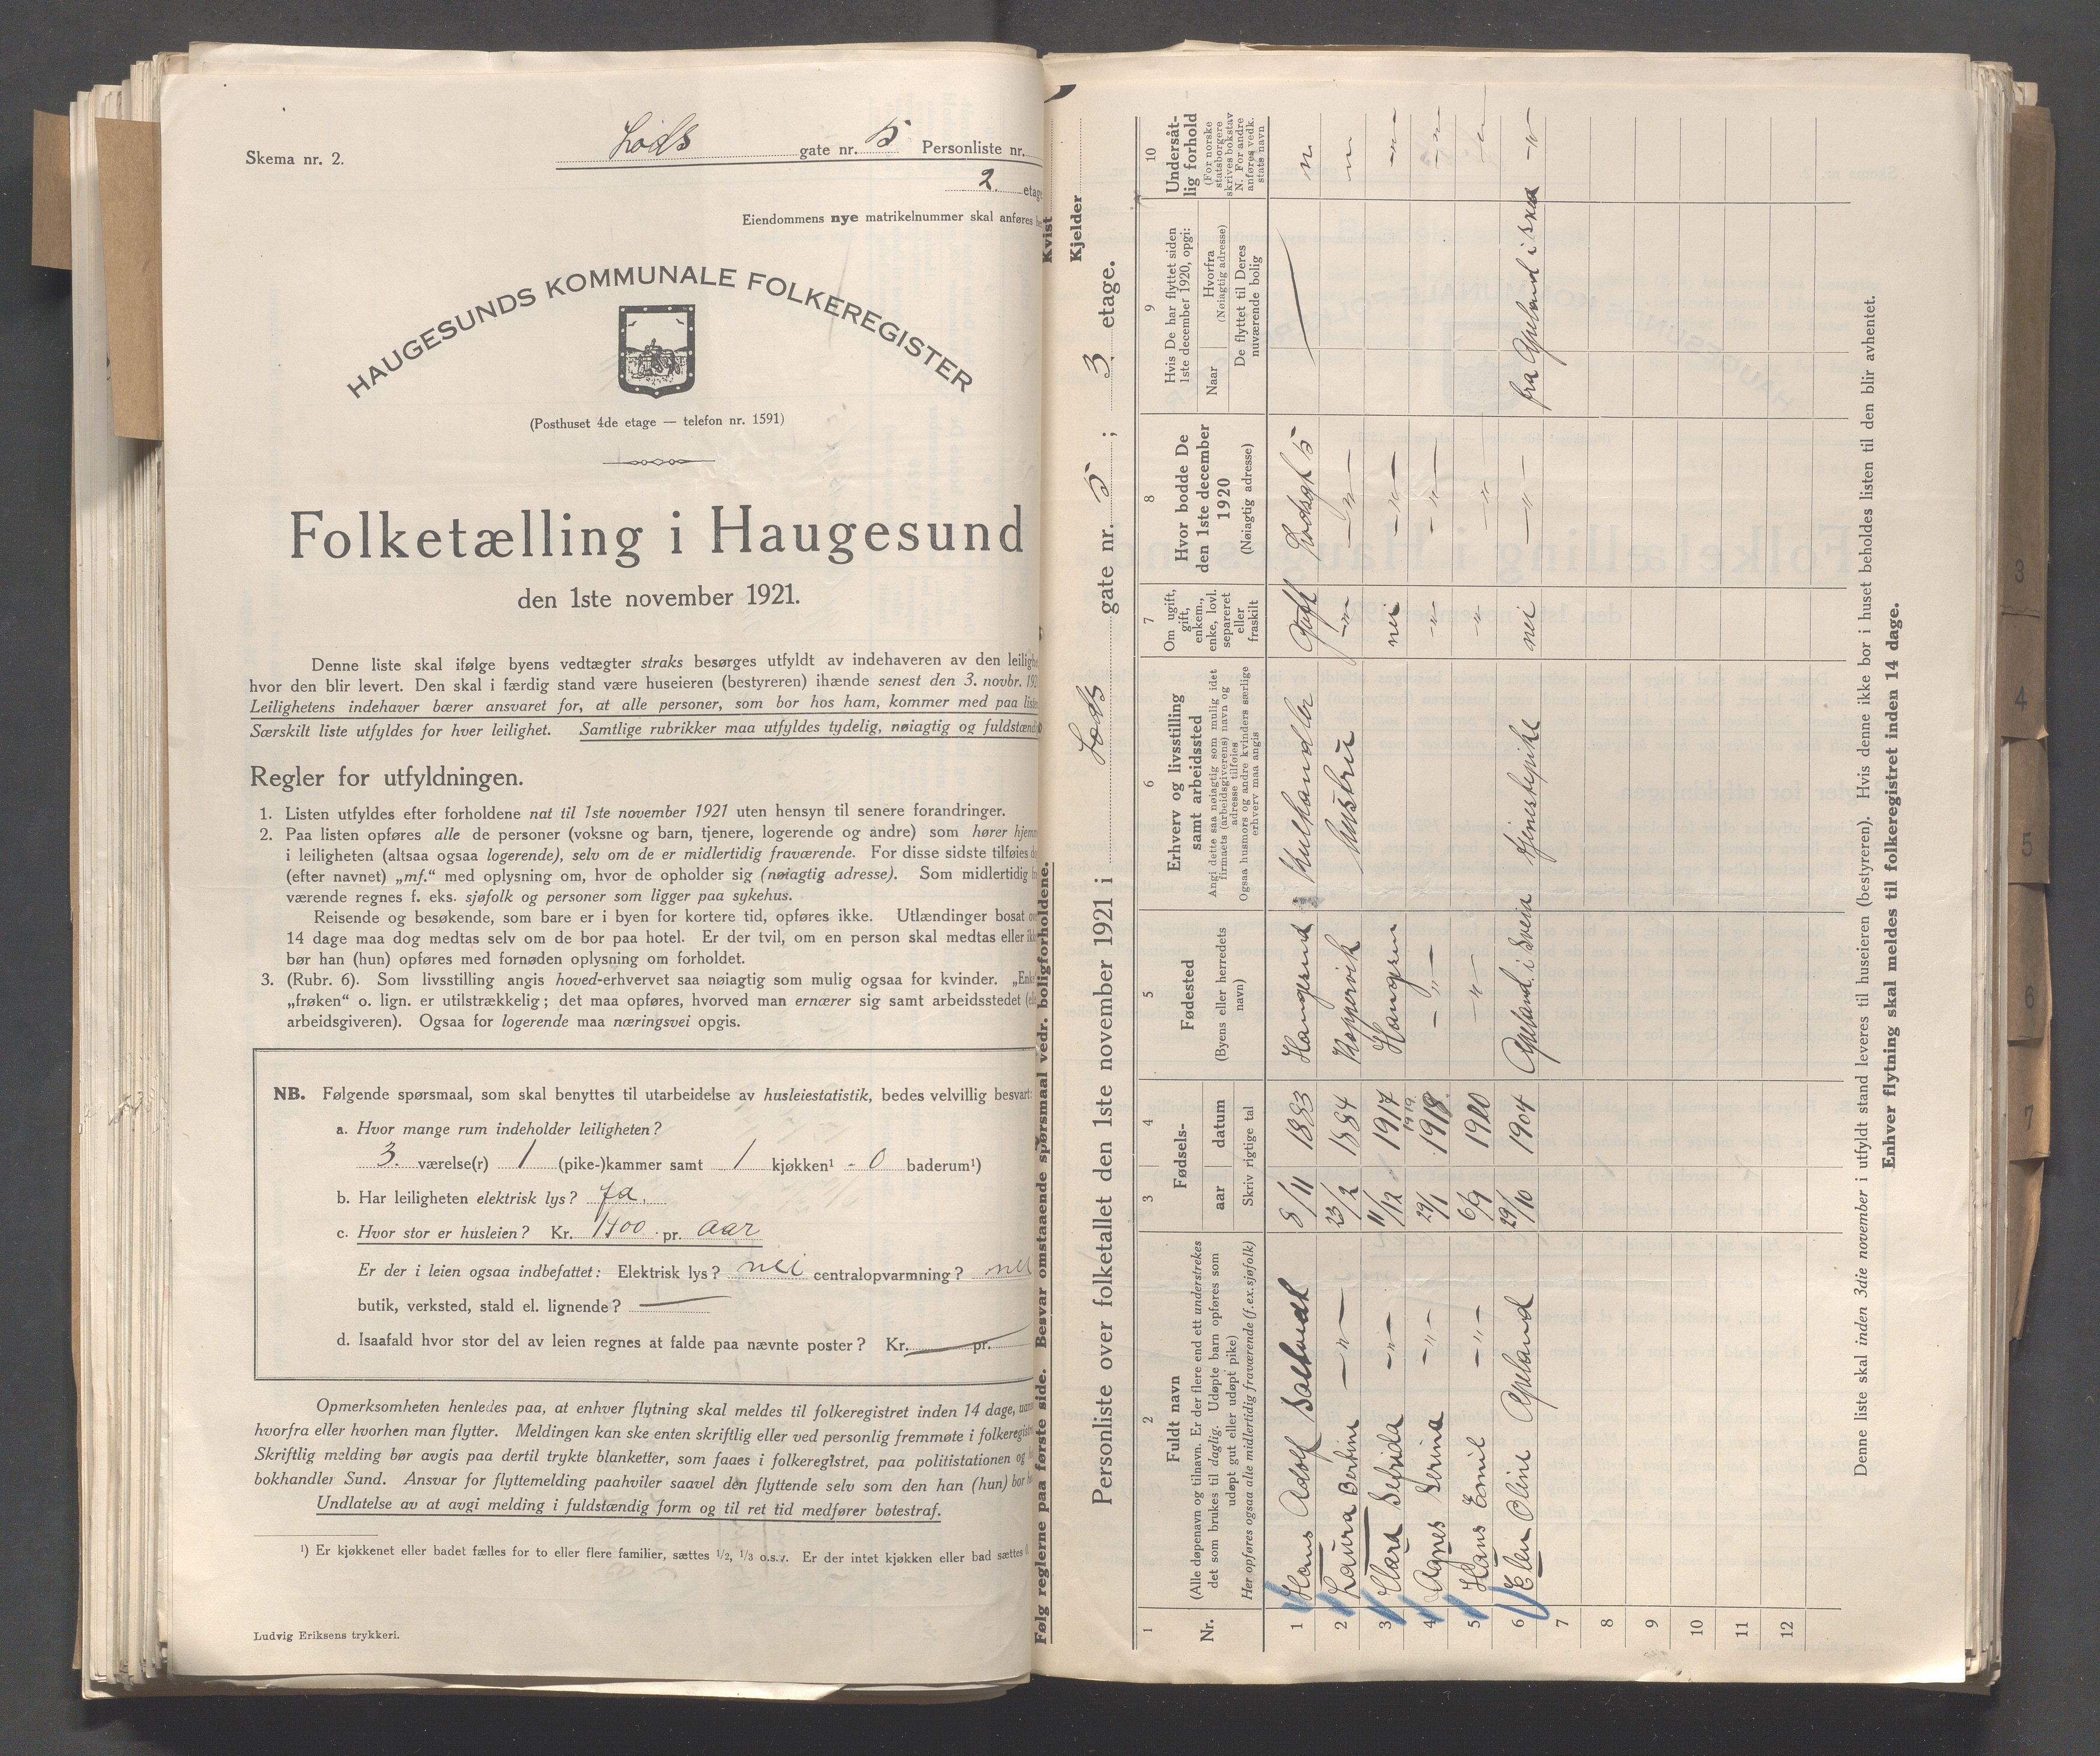 Skema nr. 2.
Lods gate nr. 5 Personliste nr.
2. etage
Eiendommens nye matrikelnummer skal anføres
HAUGESUNDS KOMMUNALE FOLKEREGISTER
(Posthuset 4de etage — telefon nr. 1591)
Folketælling i Haugesund
den 1ste november 1921.
Denne liste skal ifølge byens vedtægter straks besørges utfyldt av indehaveren av den leilighe
hvor den blir levert. Den skal i færdig stand være huseieren (bestyreren) ihænde senest den 3. novbr. 192
Leilighetens indehaver bærer ansvaret for, at alle personer, som bor hos ham, kommer med paa liste
Særskilt liste utfyldes for hver leilighet. Samtlige rubrikker maa utfyldes tydelig, nøiagtig og fuldstændi
Regler for utfyldningen.
1. Listen utfyldes efter forholdene nat til 1ste november 1921 uten hensyn til senere forandringer.
2. Paa listen opføres alle de personer (voksne og barn, tjenere, logerende og andre) som hører hjem
i leiligheten (altsaa ogsaa logerende), selv om de er midlertidig fraværende. For disse sidste tilføies d
(efter navnet) „mf.“ med oplysning om, hvor de opholder sig (nøiagtig adresse). Som midlertidig
værende regnes f. eks. sjøfolk og personer som ligger paa sykehus.
Reisende og besøkende, som bare er i byen for kortere tid, opføres ikke. Utlændinger bosat
14 dage maa dog medtas selv om de bor paa hotel. Er der tvil, om en person skal medtas eller ik
bør han (hun) opføres med fornøden oplysning om forholdet.
3. (Rubr. 6). Som livsstilling angis hoved-erhvervet saa nøiagtig som mulig ogsaa for kvinder. „Enk
„frøken“ o. lign. er utilstrækkelig; det maa opføres, hvorved man ernærer sig samt arbeidsstedet (
arbeidsgiveren). Ogsaa for logerende maa næringsvei opgis.
NB. Følgende spørsmaal, som skal benyttes til utarbeidelse av husleiestatistik, bedes velvillig besvart:
a. Hvor mange rum indeholder leiligheten?
3. værelse(r) 1 (pike-)kammer samt 1 kjøkken¹ - 0 baderum¹)
b. Har leiligheten elektrisk lys? Ja.
c. Hvor stor er husleien? Kr. 1400 pr. aar
Er der i leien ogsaa indbefattet: Elektrisk lys? nei centralopvarmning? nei
butik, verksted, stald el. lignende? —
d. Isaafald hvor stor del av leien regnes at falde paa nævnte poster? Kr. — pr.
Opmerksomheten henledes paa, at enhver flytning skal meldes til folkeregistret inden 14 dage,
hvorfra eller hvorhen man flytter. Meldingen kan ske enten skriftlig eller ved personlig fremmøte i folkeregist
Skriftlig melding bør avgis paa dertil trykte blanketter, som faaes i folkeregistret, paa politistationen og
bokhandler Sund. Ansvar for flyttemelding paahviler saavel den flyttende selv som den han (hun) bor
Undlatelse av at avgi melding i fuldstændig form og til ret tid medfører bøtestraf.
¹) Er kjøkkenet eller badet fælles for to eller flere familier, sættes 1/2, 1/3 o.s.v. Er der intet kjøkken eller bad sættes 0
Ludvig Eriksens trykkeri.
Følg reglerne paa første side. Besvar omstaaende spørsmaal vedr. boligforholdene.
Kvist
Kjelder
Personliste over folketallet den 1ste november 1921 i Lods gate nr. 5 ; 3. etage.
1 2 3 4 5 6 7 8 9 10
Nr.
Fuldt navn
(Alle døpenavn og tilnavn. Er der flere end ett understrekes
det som brukes til daglig. Udøpte barn opføres som
udøpt gut eller udøpt pike)
Her opføres ogsaa alle midlertidig fraværende (f.ex.sjøfolk)
Fødsels-
aar datum
Skriv rigtige tal
Fødested
(Byens eller herredets
navn)
Erhverv og livsstilling
samt arbeidssted
Angi dette saa nøiagtig som mulig idet
firmaets (arbeidsgiverens) navn og
adresse tilføies
Ogsaa husmors og andre kvinders særlige
erhverv maa angis
Om ugift,
gift,
enkem.,
enke, lovl.
separeret
eller
fraskilt
Hvor bodde De
den 1ste december
1920
(Nøiagtig adresse)
Hvis De har flyttet siden
1ste december 1920, opgi:
Naar
Hvorfra
(Nøiagtig adresse)
De flyttet til Deres
nuværende bolig
Undersåt-
lig forhold
(For norske
statsborgere
skrives bokstav
N. For andre
anføres vedk.
stats navn
1 Hans Adolf Saltvedt 8/11 1883 Haugesund Kulhandler Gift Lodsgt 5 — n
2 Laura Bertine —"— 23/2 1884 Koppervik hustru —"— —"— n
3 Clara Selvida —"— 11/12 1917 Haugesun nei —"— —"—
4 Agnes Serina —"— 29/1 1919 1918. —"— —"— —"— —"—
5 Hans Emil —"— 6/9 1920 —"— —"— —"— —"—
6 Elen Oline Apeland 29/10 1904 Apeland. i Sveia tjenestepike nei —"— fra Apeland i —"—
7
8
9
10
11
12
Denne liste skal inden 3die november i utfyldt stand leveres til huseieren (bestyreren). Hvis denne ikke bor i huset beholdes listen til den blir avhentet.
Enhver flytning skal meldes til folkeregistret inden 14 dage.
3
4
5
6
7